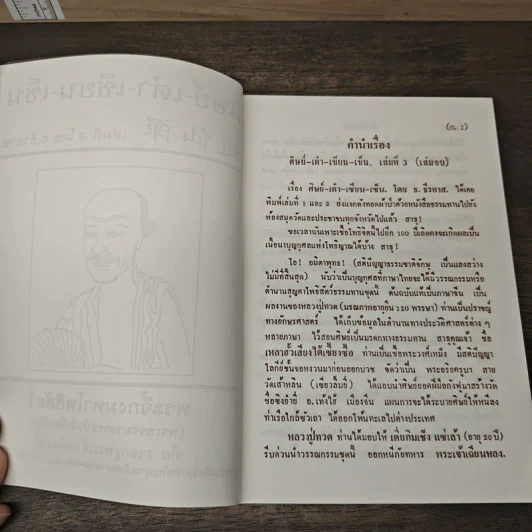 (ก. 1)
คำนำเรื่อง
ศิษย์-เต๋า-เซียน-เซ็น. เล่มที่ 3 (เล่มจบ)
เรื่อง ศิษย์-เต๋า-เซียน-เซ็น. โดย ธ. ธีรทาส. ได้เคย
พิมพ์เล่มที่ 1 และ 2 ส่งแจกดังทอดผ้าป่าด้วยหนังสือธรรมทานไปยัง
ห้องสมุดวัดและประชาชนทุกจังหวัดไปแล้ว สาธุ!
ขอเวลานับเพาะเชื้อโพธิจิตนี้ไปอีก 100 ปีเถิดคงจะเกิดผลเป็น
เนื้อนาบุญกุศลแห่งโพธิญาณได้บ้าง สาธุ!
โอ! อมิตาพุทธ! (สติปัญญาธรรมชาติจักษุ เป็นแสงสว่าง
ไม่มีที่สิ้นสุด) นับว่าเป็นบุญกุศลที่ภาษาไทยจะได้มีวรรณกรรมหรือ
ตำนานสุญตาโพธิสัตว์ธรรมทานชุดนี้ ต้นฉบับแท้เป็นภาษาจีน เป็น
ผลงานของหลวงปู่ทวด (มรณภาพอายุขัย 120 พรรษา) ท่านเป็นปราชญ์
ทางอักษรศาสตร์ ได้เก็บข้อมูลในตำนานทางประวัติศาสตร์ต่าง ๆ
หลายภาษา ไว้สอนศิษย์เป็นมรดกทางธรรมทาน สาธุคุณเจ้า ชื่อ
ท่านเป็นเชื้อพระวงศ์เหม็ง มีสติปัญญา
โลกีย์ชั้นจอหงวนมาก่อนออกบวช จัดว่าเป็น พระอริยครูบา สาย
วัดเส้าหลิน ได้แอบนำศิษย์ยอดฝีมือกังฟูมาสร้างวัด
อ.เท่งไฮ้ เมืองจีน แผนการจะได้ระบายศิษย์ให้หนีลง
ท่าเรือใกล้ซัวเถา ได้ออกโพ้นทะเลไปต่างประเทศ
หลวงปู่ทวด ท่านได้มอบให้ เตี่ยกิมเซ็ง แซ่เล้า (อายุ 20 ปี)
รีบด่วนนำวรรณกรรมชุดนี้ ออกหนีภัยทหาร พระเจ้าเฉียนหลง.